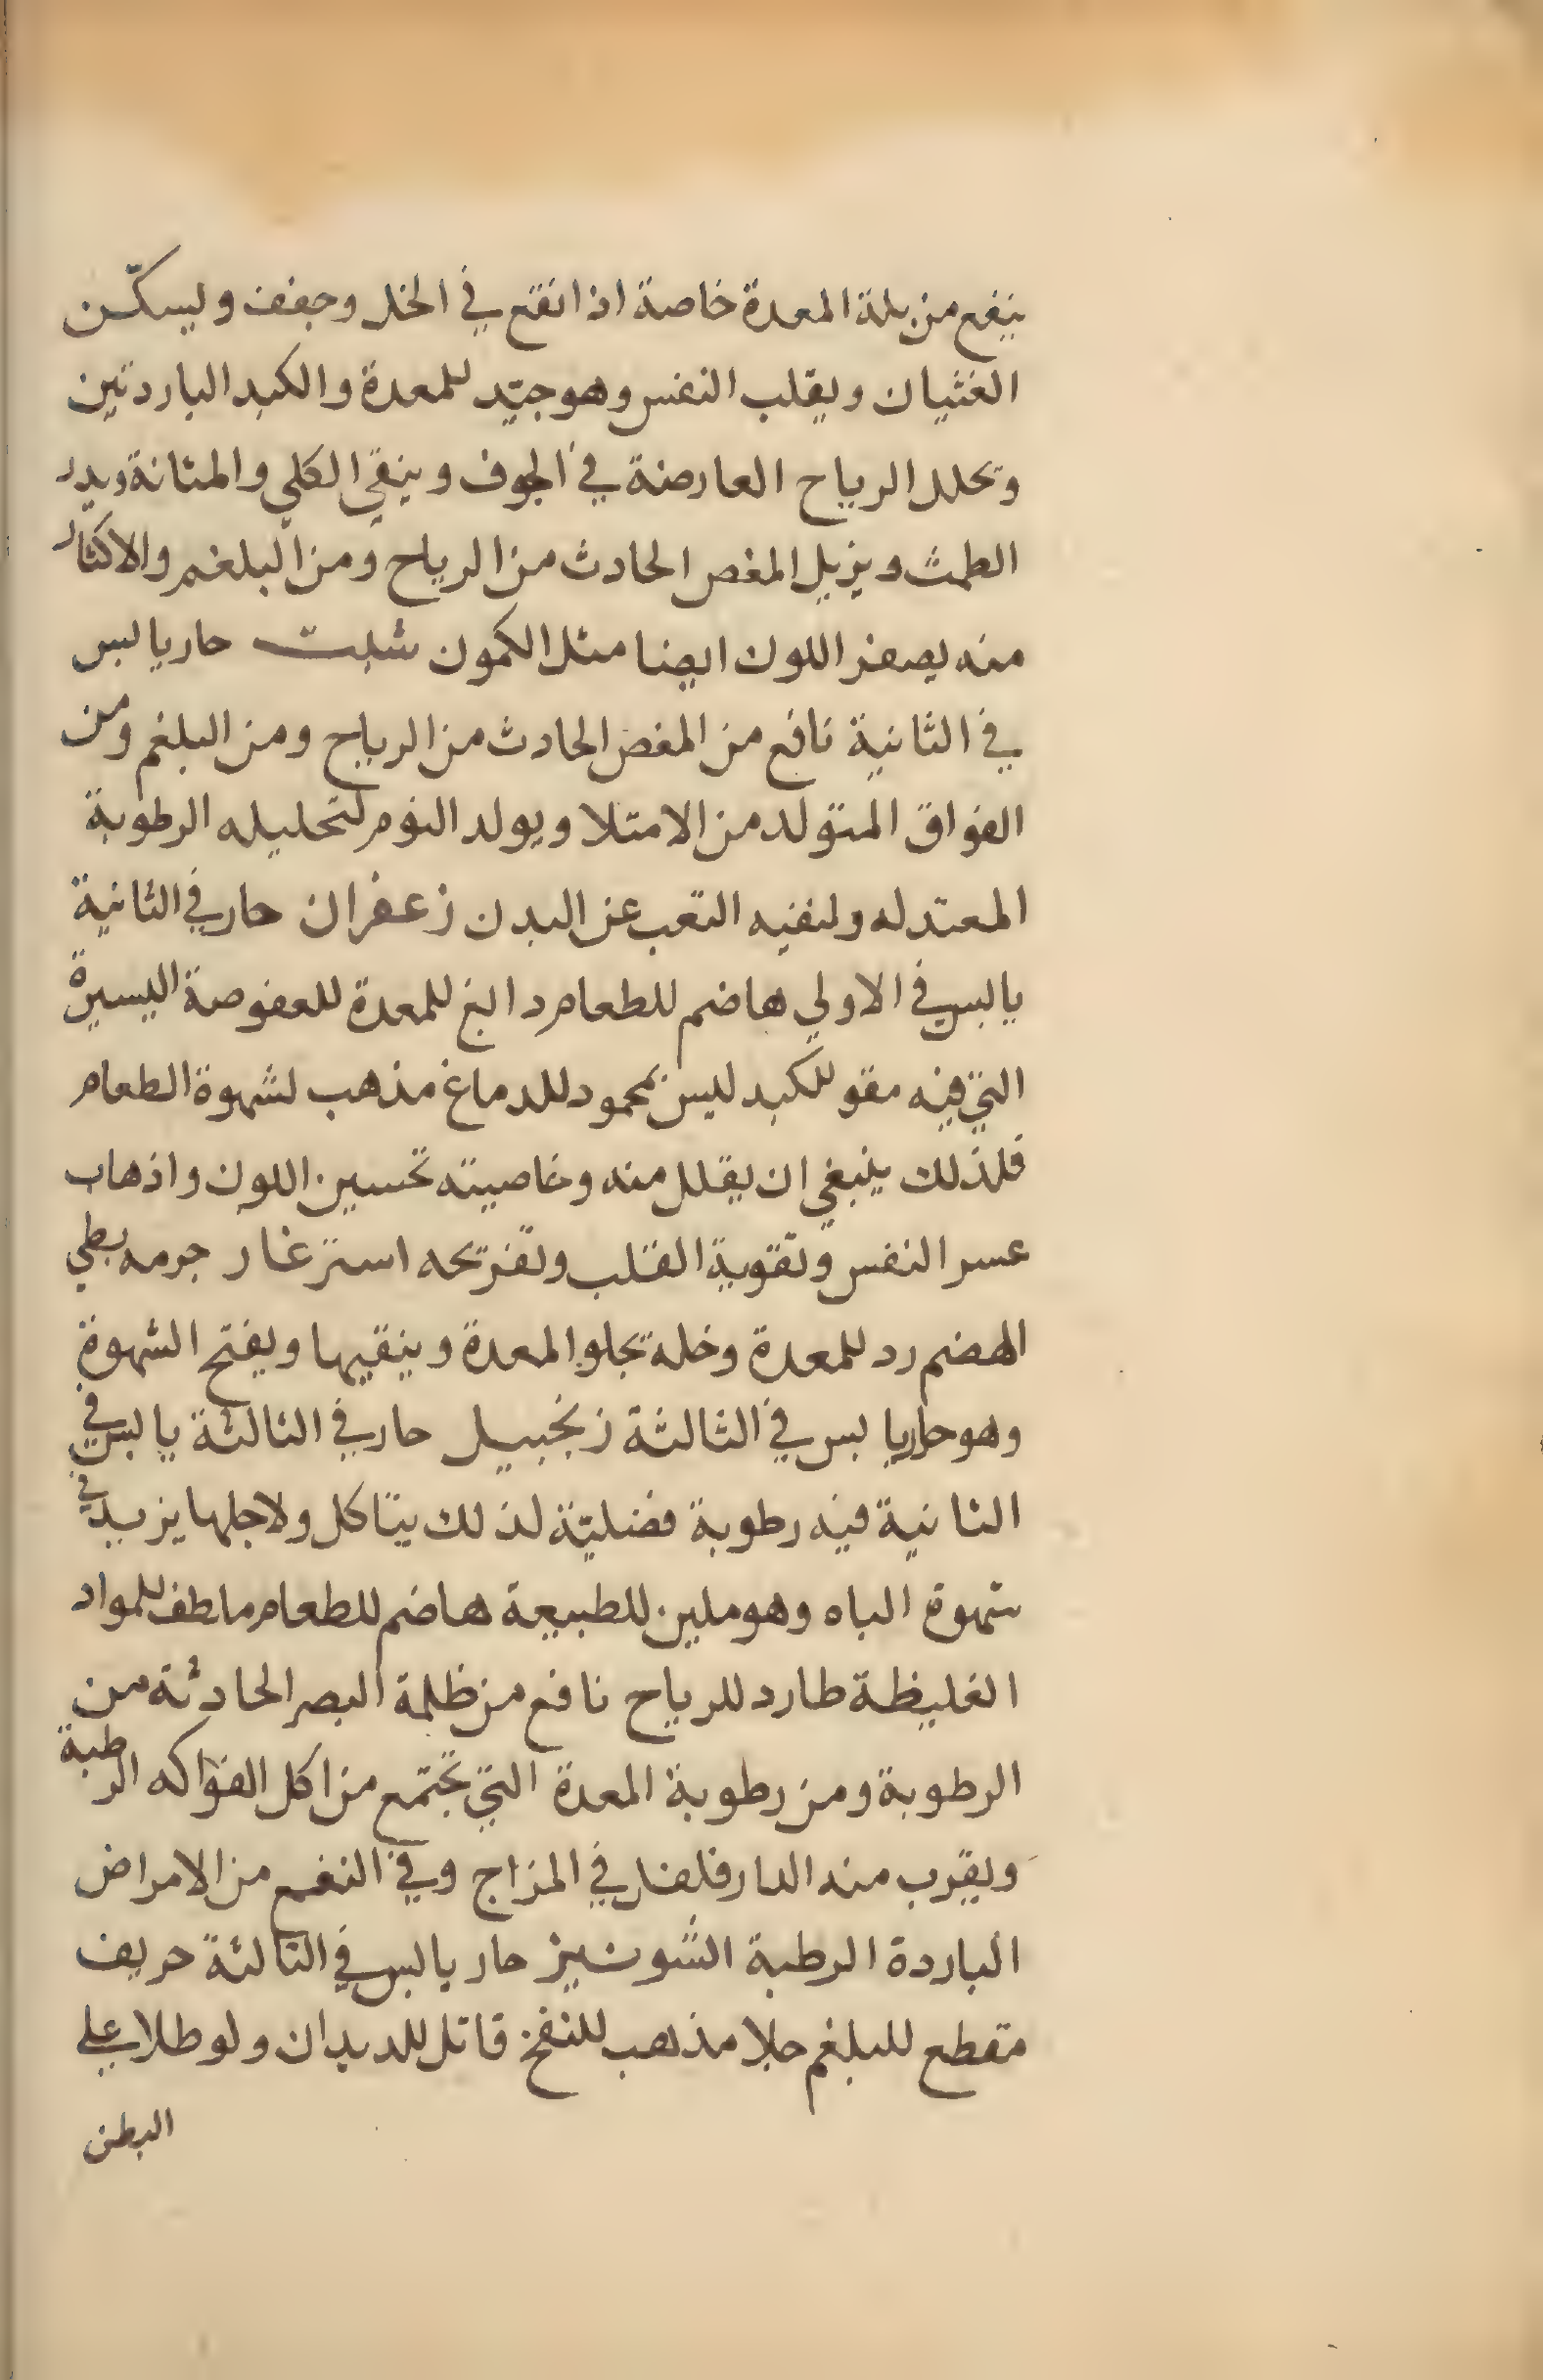 ينفع من بلة المعدة خاصة اذا انقع في الخل وجفف ويسكّن
الغثيان ويقلب النفس وهو جيّد للمعدة والكبد الباردتين
وتحلل الرياح العارضة في الجوف وينقي الكلي والمثانة ويدر
الطمث ويزيل المغص الحادث من الرياح ومن البلغم والاكثار
منه يصفر اللون ايضا مثل الكمون شبت حار يابس
في الثانية نافع من المغص الحادث من الرياح ومن البلغم ومن
الفواق المتولد من الامتلا ويولد النوم لتحليله الرطوبة
المعتدله ولنفيه التعب عن البدن زعفران حار في الثانية
يابس في الاولي هاضم للطعام دابغ للمعدة للعفوصة اليسيرة
التي فيه مقو للكبد ليس بمحمود للدماغ مذهب لشهوة الطعام
فلذلك ينبغي ان يقلل منه وخاصيته تحسين اللون واذهاب
عسر النفس وتقوية القلب وتفريحه اشترغار جرمه بطي
الهضم رد للمعدة وخله تجلو المعدة وينقيها ويفتح الشهوة
وهو حار يابس في الثالثة زنجبيل حار في الثالثة يابس في
الثانية فيه رطوبة فضليّة لذلك يتاكل ولاجلها يزيد في
شهوة الباه وهو ملين للطبيعة هاضم للطعام ملطف للمواد
الغليظة طارد للرياح نافع من ظلمة البصر الحادثة من
الرطوبة ومن رطوبة المعدة التي تجتمع من اكل الفواكه الرطبة
ويقرب منه الدار فلفل في المزاج وفي النفع من الامراض
الباردة الرطبة الشونيز حار يابس في الثالثة حريف
مقطع للبلغم جلا مذهب للنفخ قاتل للديدان ولو طلا علي
البطن